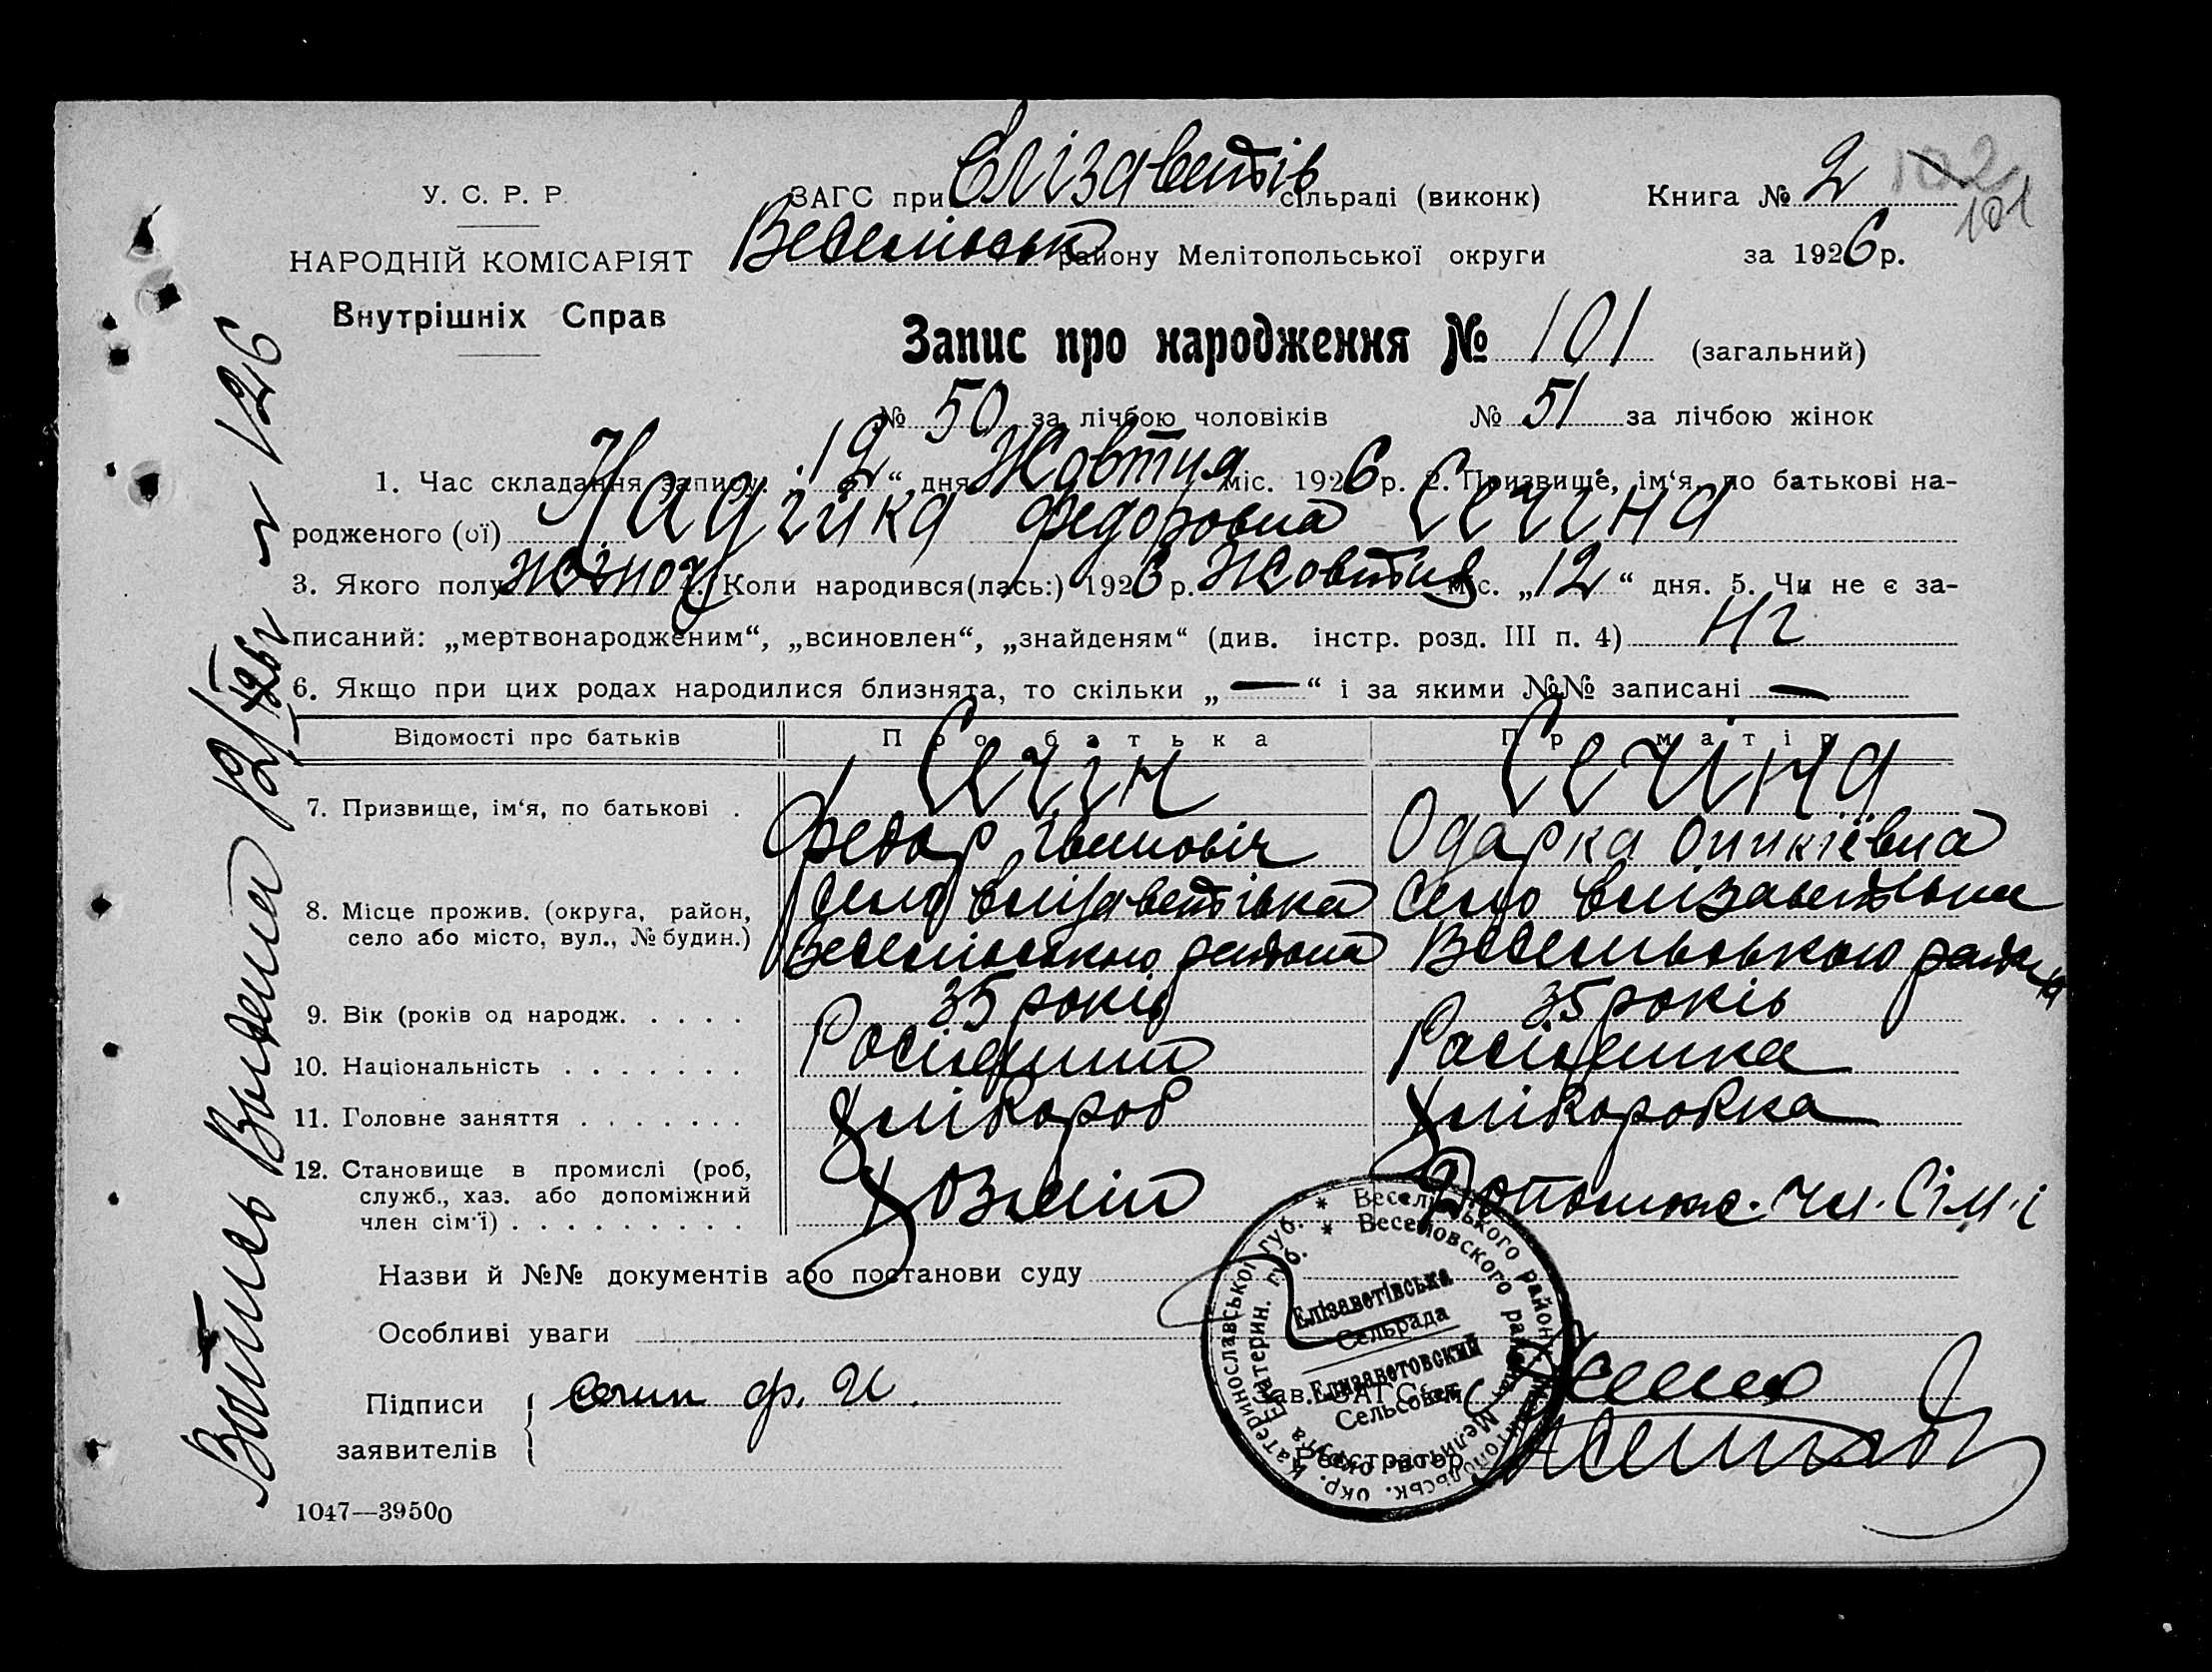 У. С. Р. Р.
НАРОДНІЙ КОМІСАРІЯТ
Внутрішніх Справ
ЗАГС при Єлізаветів сільраді (виконк)
Веселівськ району Мелітопольської округи
Книга № 2
102
101
за 1926 р.
Запис про народження № 101 (загальний)
№ 50 за лічбою чоловіків № 51 за лічбою жінок
1. Час складання запису. „12“ дня Жовтня міс. 1926 р. 2. Призвище, ім‘я, по батькові на-
родженого (ої) Надійка Федоровна Сечина
3. Якого полу жіноч 4. Коли народився(лась:) 1926 р. Жовтня міс. „12“ дня. 5. Чи не є за-
писаний: „мертвонародженим“, „всиновлен“, „знайденям“ (див. інстр. розд. III п. 4) Ні
6. Якщо при цих родах народилися близнята, то скільки „—“ і за якими №№ записані —
Відомості про батьків Про батька Про матір
7. Призвище, ім‘я, по батькові . Сечін Сечіна
Федор Івановіч Одарка
8. Місце прожив. (округа, район, село або місто, вул., № будин.) село Єлізаветівка село Єлізаветівка
Веселівського района Веселівського района
9. Вік (років од народж. . . . . 35 років 35 років
10. Національність . . . . . . . Росіянин Росіянка
11. Головне заняття . . . . . . . Хлібороб Хліборобка
12. Становище в промислі (роб, служб., хаз. або допоміжний член сім‘ї) . . . . . . . . . Хозяін Допоміж. чл. Сім'ї
Назви й №№ документів або постанови суду
Особливі уваги
Підписи заявителів Сечин Ф. И.
Зав. ЗАГС‘ом
Реєстратор
Елізаветівська
Сельрада
Елизаветовский
Сельсовет
1047—39500